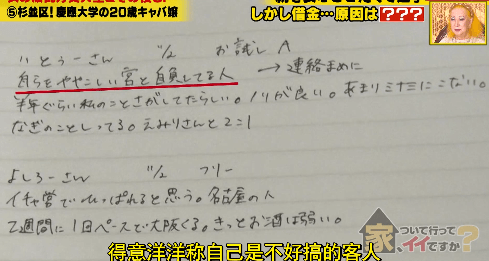 ⑤杉並区!慶應大学の20歳キャバ嬢
しかし借金…原因は???
いとうーさん 11/2 お試し A
自らをややこしい客と自負してる人 → 連絡まめに
半年ぐらい私のことさがしてたらしい。ノリが良い。あまりミナミにこない。
なぎのことしってる。えみりさんと2こ1
よしろーさん 11/2 フリー
イチャ営でひっぱれると思う。名古屋の人
2週間に1回ペースで大阪くる。きっとお酒は弱い。
家、ついて行ってイイですか?
得意洋洋称自己是不好搞的客人